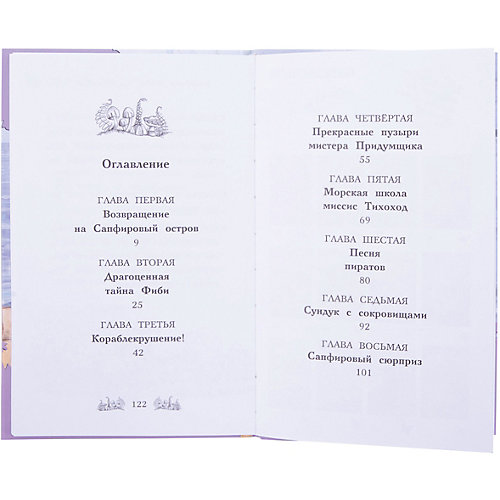 Оглавление
ГЛАВА ПЕРВАЯ
Возвращение
на Сапфировый остров
9
ГЛАВА ВТОРАЯ
Драгоценная
тайна Фиби
25
ГЛАВА ТРЕТЬЯ
Кораблекрушение!
42
122
ГЛАВА ЧЕТВЁРТАЯ
Прекрасные пузыри
мистера Придумщика
55
ГЛАВА ПЯТАЯ
Морская школа
миссис Тихоход
69
ГЛАВА ШЕСТАЯ
Песня
пиратов
80
ГЛАВА СЕДЬМАЯ
Сундук с сокровищами
92
ГЛАВА ВОСЬМАЯ
Сапфировый сюрприз
101